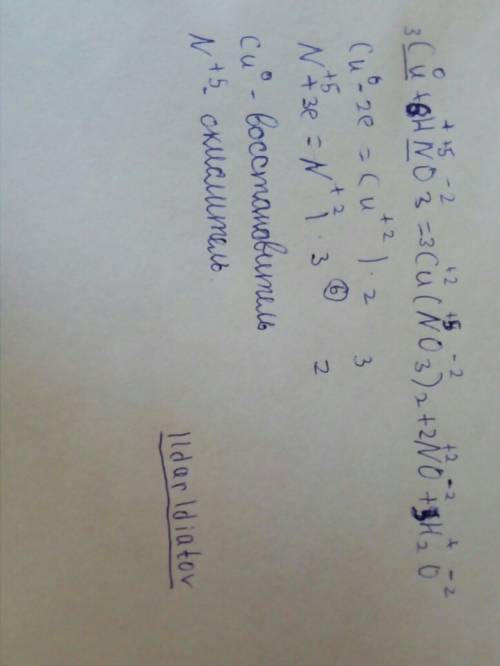 3Cu⁰ + 8H⁺N⁺⁵O3⁻² = 3Cu⁺²(N⁺⁵O3⁻²)2 + 2N⁺²O⁻² + H2⁺O⁻²
Cu⁰ - 2e = Cu⁺² | · 2 3
N⁺⁵ + 3e = N⁺² | · 3 ⑥ 2
Cu⁰ - восстановитель
N⁺⁵ - окислитель.
Ildar Idiatov